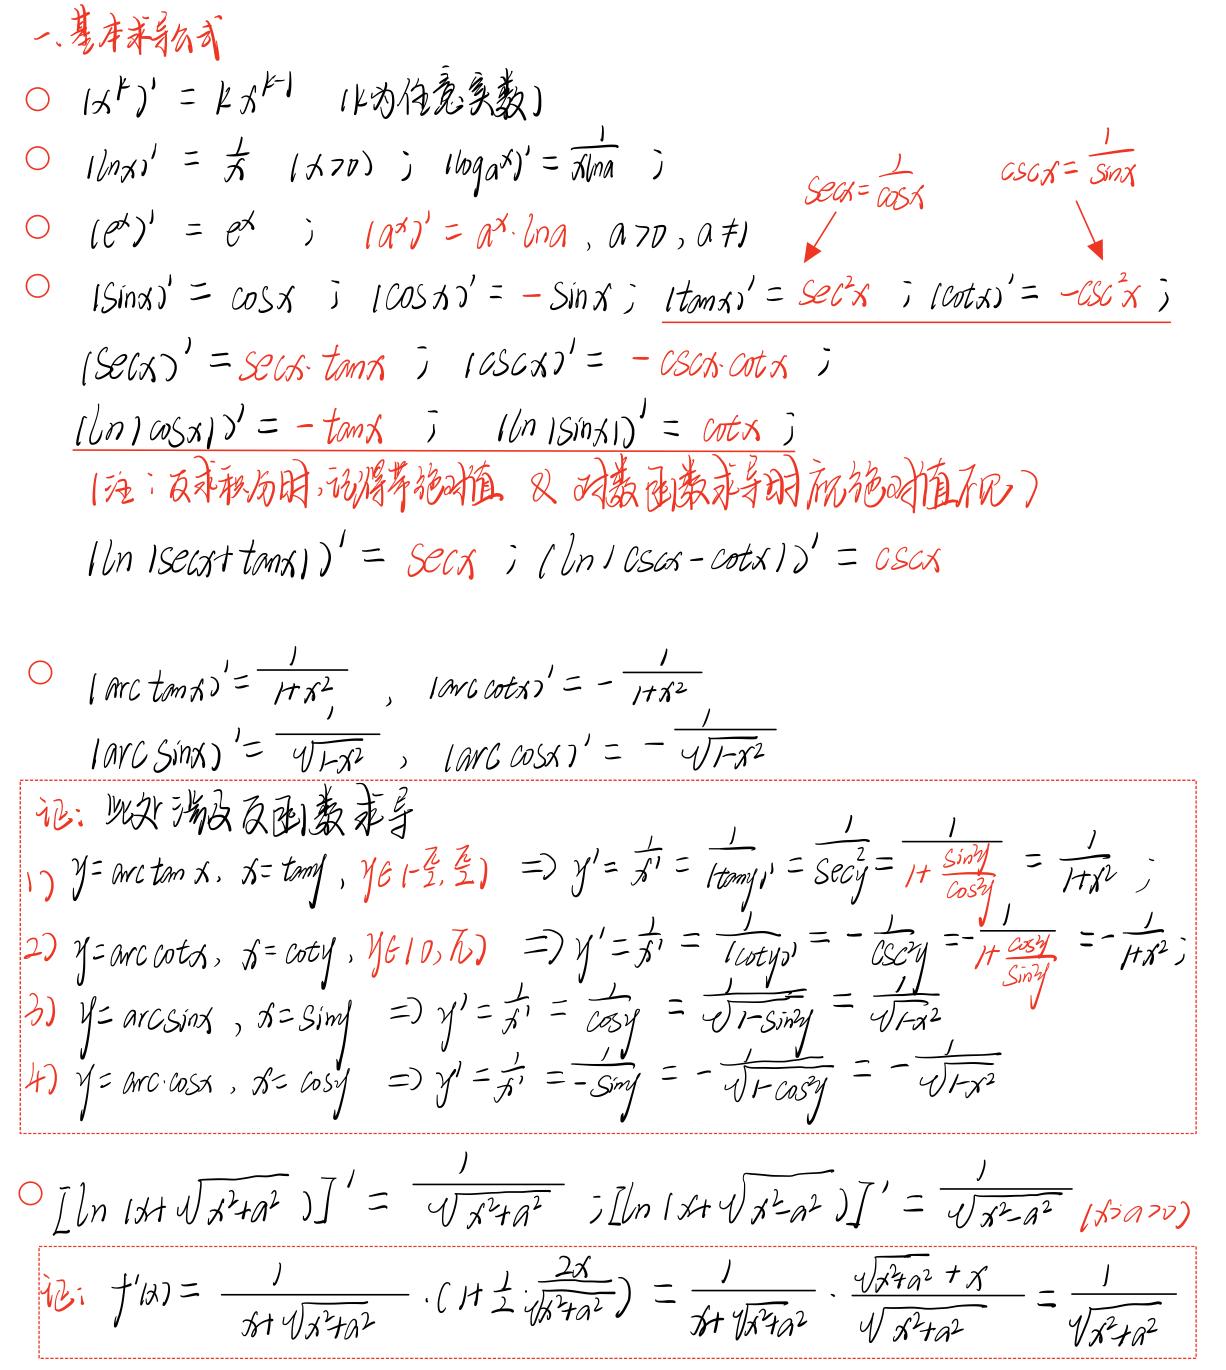 一、基本求导公式
(x^k)' = kx^{k-1} (k为任意实数)
(lnx)' = 1/x (x>0) ; (log_a x)' = 1/(xlna) ;
secx = 1/cosx cscx = 1/sinx
(e^x)' = e^x ; (a^x)' = a^x·lna , a>0 , a≠1
(sinx)' = cosx ; (cosx)' = -sinx ; (tanx)' = sec²x ; (cotx)' = -csc²x ;
(secx)' = secx·tanx ; (cscx)' = -cscx·cotx ;
(ln|cosx|)' = -tanx ; (ln|sinx|)' = cotx ;
(注：反求积分时,记得带绝对值 及 对数函数求导时视绝对值不见)
(ln|secx+tanx|)' = secx ; (ln|cscx-cotx|)' = cscx
(arctanx)' = 1/(1+x²) , (arccotx)' = -1/(1+x²)
(arcsinx)' = 1/√(1-x²) , (arccosx)' = -1/√(1-x²)
证: 此处涉及反函数求导
1) y=arctanx, x=tany, y∈(-π/2, π/2) => y' = 1/x' = 1/(tany)' = 1/sec²y = 1/(1+sin²y/cos²y) = 1/(1+x²) ;
2) y=arccotx, x=coty, y∈(0,π) => y' = 1/x' = 1/(coty)' = -1/csc²y = -1/(1+cos²y/sin²y) = -1/(1+x²) ;
3) y=arcsinx , x=siny => y' = 1/x' = 1/cosy = 1/√(1-sin²y) = 1/√(1-x²)
4) y=arc·cosx , x=cosy => y' = 1/x' = 1/(-siny) = -1/√(1-cos²y) = -1/√(1-x²)
[ln(x+√(x²+a²))]' = 1/√(x²+a²) ; [ln(x+√(x²-a²))]' = 1/√(x²-a²) (x>a>0)
证: f'(x) = 1/(x+√(x²+a²)) · (1+1/2·2x/√(x²+a²)) = 1/(x+√(x²+a²)) · (√(x²+a²)+x)/√(x²+a²) = 1/√(x²+a²)